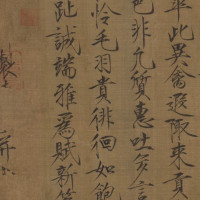 皐此異禽遐陬來貢
色非凡質惠吐多言
怜毛羽貴徘徊如飽
趾誠端雅爲賦新篇
製